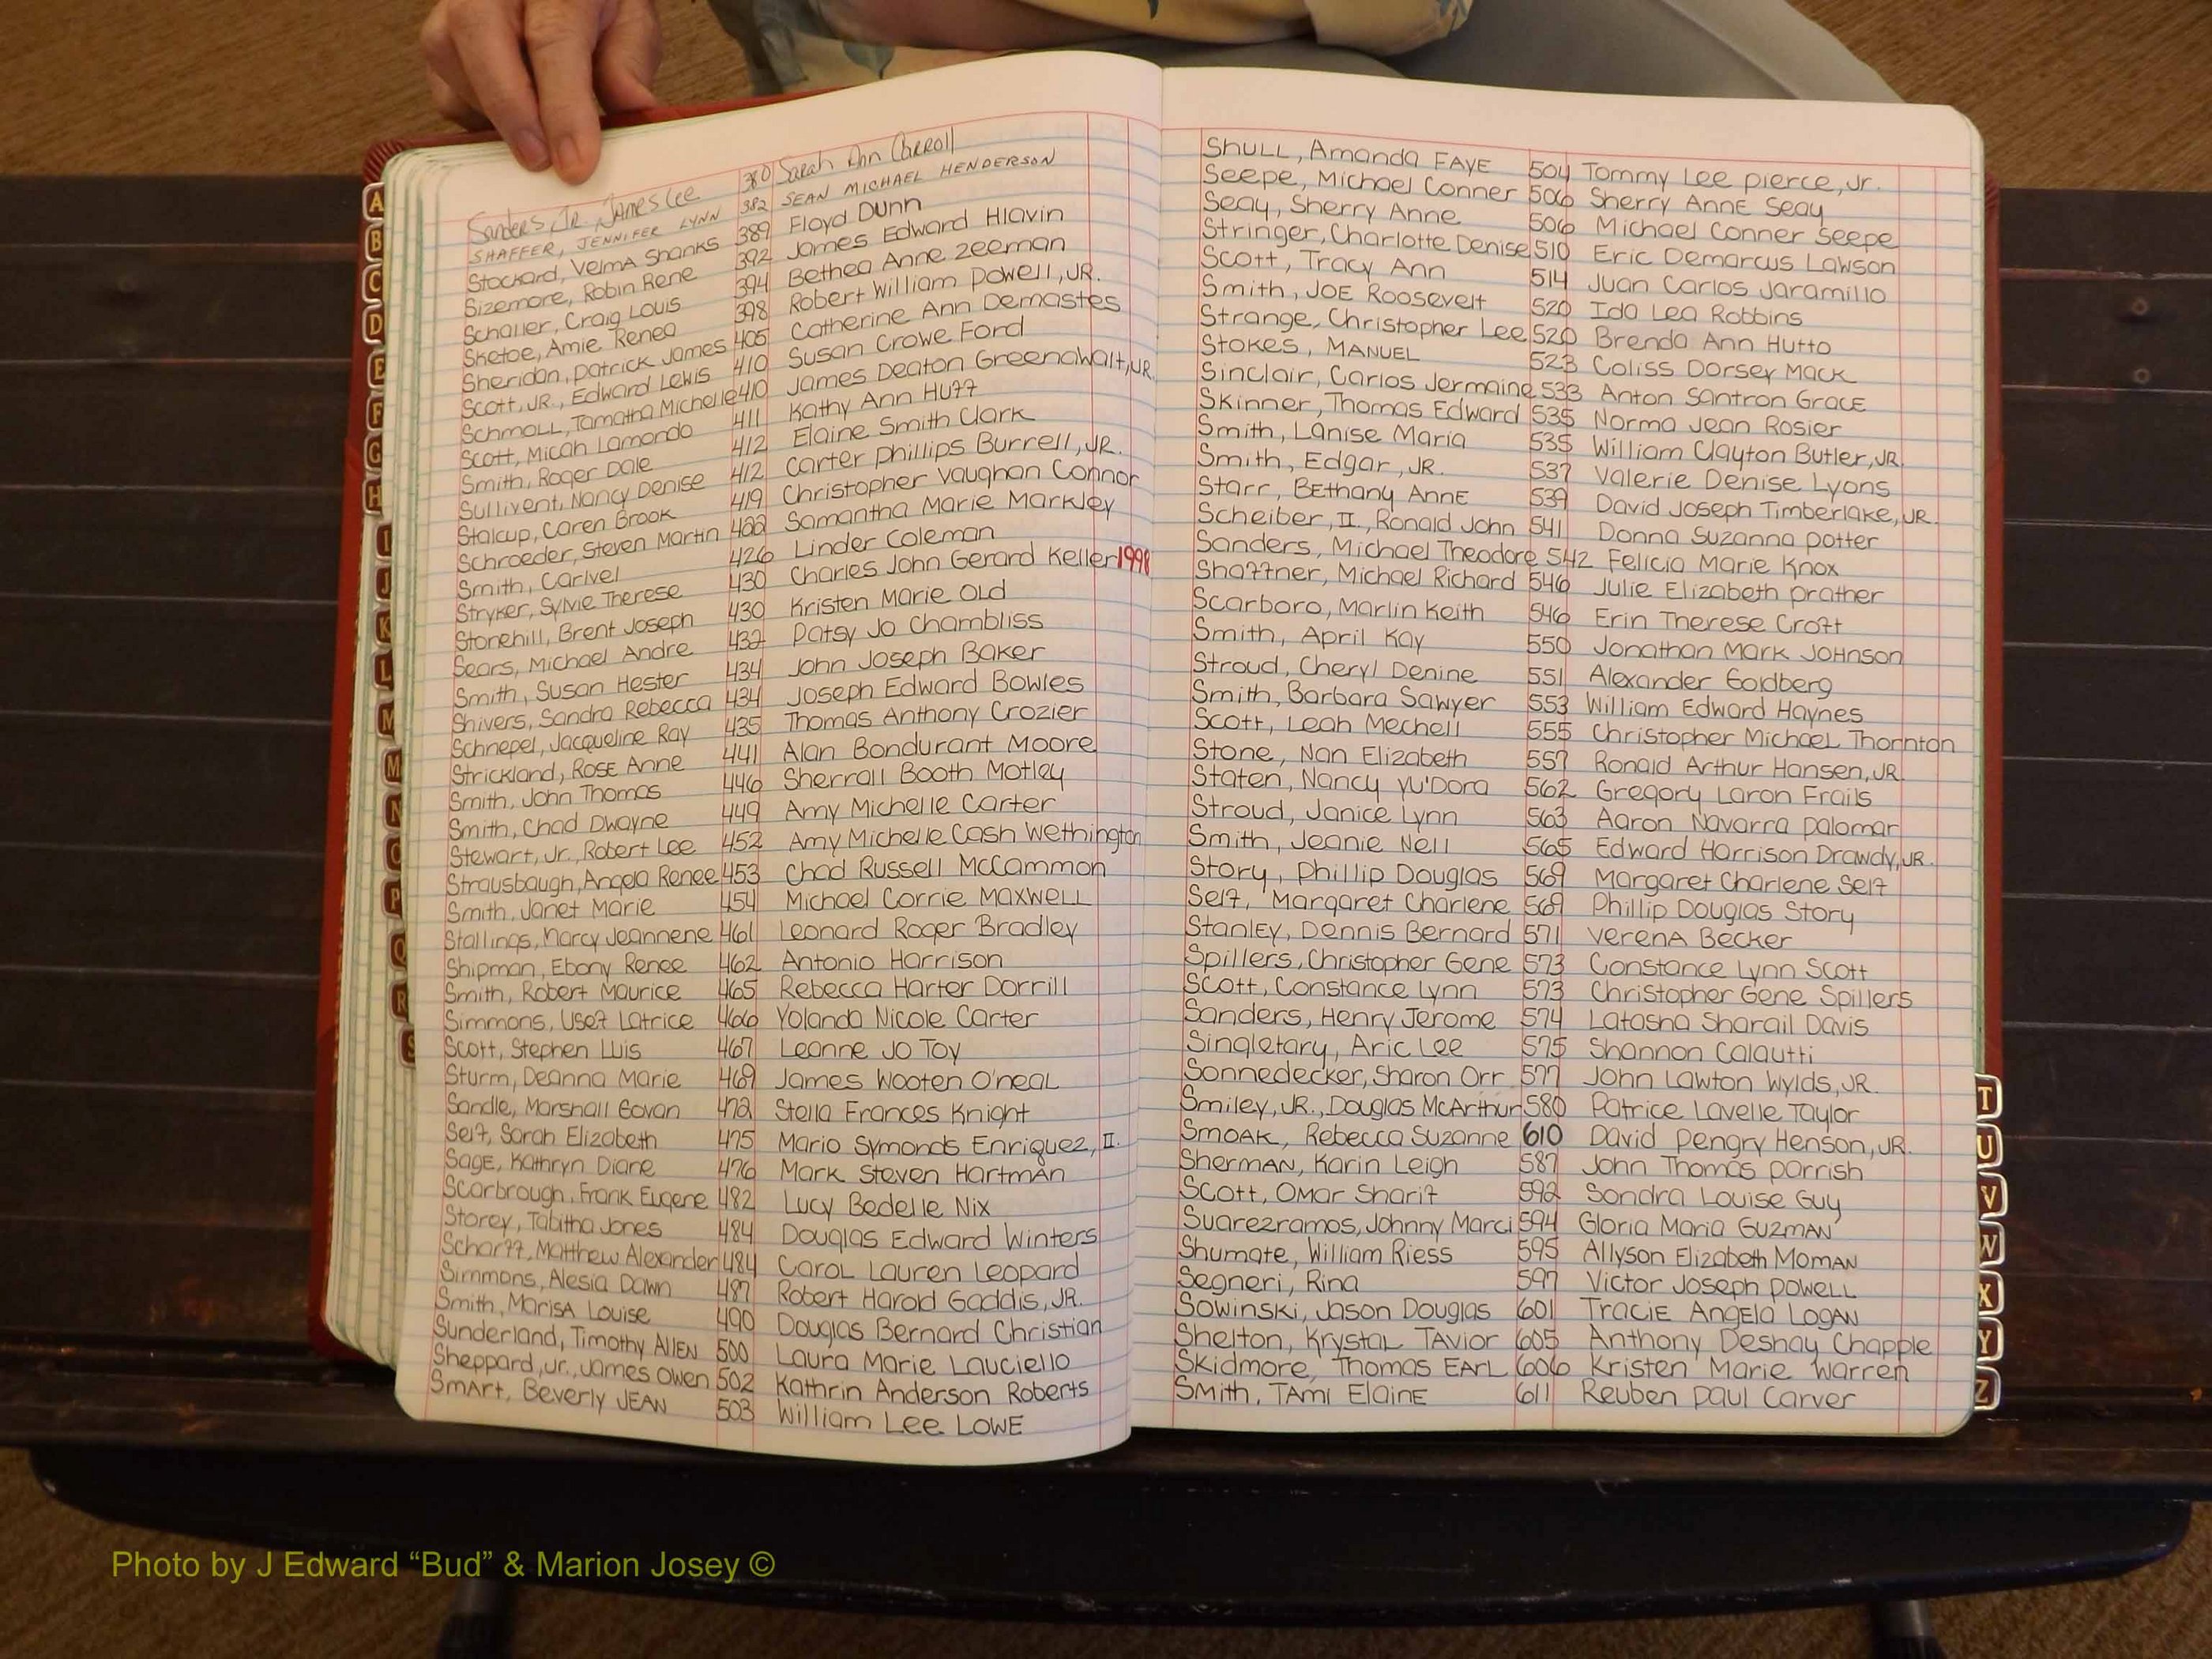 Sanders, Jr. James Lee 380 Sarah Ann Carroll
SHAFFER, JENNIFER LYNN 382 SEAN MICHAEL HENDERSON
Stockard, Velma Shanks 389 Floyd Dunn
Sizemore, Robin Rene 392 James Edward Hlavin
Schaller, Craig Louis 394 Bethea Anne Zeeman
Sketoe, Amie Renea 398 Robert William Powell, JR.
Sheridan, Patrick James 405 Catherine Ann Demastes
Scott, JR., Edward Lewis 410 Susan Crowe Ford
Schmoll, Tamatha Michelle 410 James Deaton Greenawalt, JR.
Scott, Micah Lamondo 411 Kathy Ann Huff
Smith, Roger Dale 412 Elaine Smith Clark
Sullivent, Nancy Denise 412 Carter Phillips Burrell, JR.
Stalcup, Caren Brook 419 Christopher Vaughan Connor
Schroeder, Steven Martin 422 Samantha Marie Markley
Smith, Carlvel 426 Linder Coleman
Stryker, Sylvie Therese 430 Charles John Gerard Keller 1998
Stonehill, Brent Joseph 430 Kristen Marie Old
Sears, Michael Andre 432 Patsy Jo Chambliss
Smith, Susan Hester 434 John Joseph Baker
Shivers, Sandra Rebecca 434 Joseph Edward Bowles
Schnepel, Jacqueline Ray 435 Thomas Anthony Crozier
Strickland, Rose Anne 441 Alan Bondurant Moore
Smith, John Thomas 446 Sherrall Booth Motley
Smith, Chad Dwayne 449 Amy Michelle Carter
Stewart, Jr., Robert Lee 452 Amy Michelle Cash Wethington
Strausbaugh, Angela Renee 453 Chad Russell McCammon
Smith, Janet Marie 454 Michael Corrie Maxwell
Stallings, Marcy Jeannene 461 Leonard Roger Bradley
Shipman, Ebony Renee 462 Antonio Harrison
Smith, Robert Maurice 465 Rebecca Harter Dorrill
Simmons, Usef Latrice 466 Yolanda Nicole Carter
Scott, Stephen Luis 467 Leanne Jo Toy
Sturm, Deanna Marie 469 James Wooten O'neal
Sandle, Marshall Govan 472 Stella Frances Knight
Self, Sarah Elizabeth 475 Mario Symonds Enriquez, II.
Sage, Kathryn Diane 476 Mark Steven Hartman
Scarbrough, Frank Eugene 482 Lucy Bedelle Nix
Storey, Tabitha Jones 484 Douglas Edward Winters
Scharff, Matthew Alexander 484 Carol Lauren Leopard
Simmons, Alesia Dawn 487 Robert Harold Gaddis, JR.
Smith, Marisa Louise 490 Douglas Bernard Christian
Sunderland, Timothy Allen 500 Laura Marie Lauciello
Sheppard, Jr., James Owen 502 Kathrin Anderson Roberts
Smart, Beverly Jean 503 William Lee Lowe
Shull, Amanda Faye 504 Tommy Lee Pierce, Jr.
Seepe, Michael Conner 506 Sherry Anne Seay
Seay, Sherry Anne 506 Michael Conner Seepe
Stringer, Charlotte Denise 510 Eric Demarcus Lawson
Scott, Tracy Ann 514 Juan Carlos Jaramillo
Smith, Joe Roosevelt 520 Ida Lea Robbins
Strange, Christopher Lee 520 Brenda Ann Hutto
Stokes, Manuel 523 Coliss Dorsey Mack
Sinclair, Carlos Jermaine 533 Anton Santron Grace
Skinner, Thomas Edward 535 Norma Jean Rosier
Smith, Lanise Maria 535 William Clayton Butler, JR.
Smith, Edgar, JR. 537 Valerie Denise Lyons
Starr, Bethany Anne 539 David Joseph Timberlake, JR.
Scheiber, II., Ronald John 541 Donna Suzanna Potter
Sanders, Michael Theodore 542 Felicia Marie Knox
Shaffner, Michael Richard 546 Julie Elizabeth Prather
Scarboro, Marlin Keith 546 Erin Therese Croft
Smith, April Kay 550 Jonathan Mark Johnson
Stroud, Cheryl Denine 551 Alexander Goldberg
Smith, Barbara Sawyer 553 William Edward Haynes
Scott, Leah Mechell 555 Christopher Michael Thornton
Stone, Nan Elizabeth 557 Ronald Arthur Hansen, JR.
Staten, Nancy Yu'Dora 562 Gregory Laron Frails
Stroud, Janice Lynn 563 Aaron Navarra Palomar
Smith, Jeanie Nell 565 Edward Harrison Drawdy, JR.
Story, Phillip Douglas 569 Margaret Charlene Self
Self, Margaret Charlene 569 Phillip Douglas Story
Stanley, Dennis Bernard 571 Verena Becker
Spillers, Christopher Gene 573 Constance Lynn Scott
Scott, Constance Lynn 573 Christopher Gene Spillers
Sanders, Henry Jerome 574 Latasha Sharail Davis
Singletary, Aric Lee 575 Shannon Calautti
Sonnedecker, Sharon Orr 577 John Lawton Wylds, JR.
Smiley, JR., Douglas McArthur 580 Patrice Lavelle Taylor
Smoak, Rebecca Suzanne 610 David Pengry Henson, JR.
Sherman, Karin Leigh 587 John Thomas Parrish
Scott, Omar Sharif 592 Sondra Louise Guy
Suarezramos, Johnny Marci 594 Gloria Maria Guzman
Shumate, William Riess 595 Allyson Elizabeth Moman
Segneri, Rina 597 Victor Joseph Powell
Sowinski, Jason Douglas 601 Tracie Angela Logan
Shelton, Krystal Tavior 605 Anthony Deshay Chapple
Skidmore, Thomas Earl 606 Kristen Marie Warren
Smith, Tami Elaine 611 Reuben Paul Carver
A
B
C
D
E
F
G
H
I
J
K
L
M
M
N
O
P
Q
R
S
T
U
V
W
X
Y
Z
Photo by J Edward “Bud” & Marion Josey ©